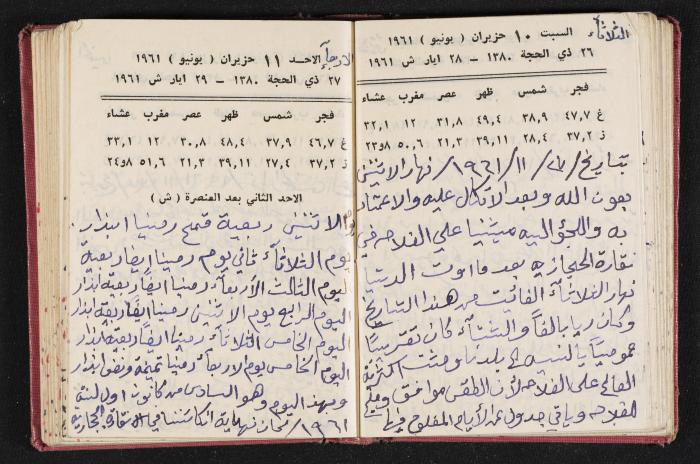 الثلاثاء
السبت ١٠ حزيران ( يونيو ) ١٩٦١
٢٦ ذي الحجة ١٣٨٠ – ٢٨ ايار ش ١٩٦١
فجر شمس ظهر عصر مغرب عشاء
غ ٤٧,٧ ٣٨,٩ ٤٩,٤ ٣١,٨ ١٢ ٣٢,١
ز ٣٧,٢ ٢٨,٤ ٣٩,١١ ٢١,٣ ٥٠,٦ ٨و٢٣
بتاريخ /٢٧/ ١١/ ١٩٦١/ نهار الاثنين
بعون الله وبعد الاتكال عليه والاعتماد
به واللجؤ اليه مشينا علي الفلاحه في
نقارة الحجازيه بعد ما اروت الدنيا
نهار الثلاثاء الفائت من هذا التاريخ
وكان ريا بالغاً والشتاء كان تقريباً
عمومياً بالنسبه الى بلدنا ومشت اكثرية
العالم على الفلاحه لأن الطقس موافق
للفلاحه وياتي جدول عدد الأيام المفلوح فيها
الاربعاء
الاحـد ١١ حزيران ( يونيو ) ١٩٦١
٢٧ ذي الحجة ١٣٨٠ – ٢٩ ايار ش ١٩٦١
فجر شمس ظهر عصر مغرب عشاء
غ ٤٦,٧ ٣٧,٩ ٤٨,٤ ٣٠,٨ ١٢ ٣٣,١
ز ٣٧,٢ ٢٧,٤ ٣٩,١١ ٢١,٣ ٥١,٦ ٨و٢٤
الاحد الثاني بعد العنصرة ( ش )
الاثنين ربعية قمح رمينا ابذار
يوم الثلاثاء ثاني يوم رمينا ايضاً ربعية
اليوم الثالث الأربعاء رمينا ايضاً ربعية ابذار
اليوم الرابع يوم الاثنين رمينا ايضاً ربعية ابذار
اليوم الخامس الثلاثاء رمينا ايضاً ربعية ابذار
اليوم الخامس يوم الاربعاء رمينا ثمنية ونصف ابذار
وبهذا اليوم وهو السادس من كانون اول لسنة
١٩٦١/ نجاز نهاية في نقارة الحجازية